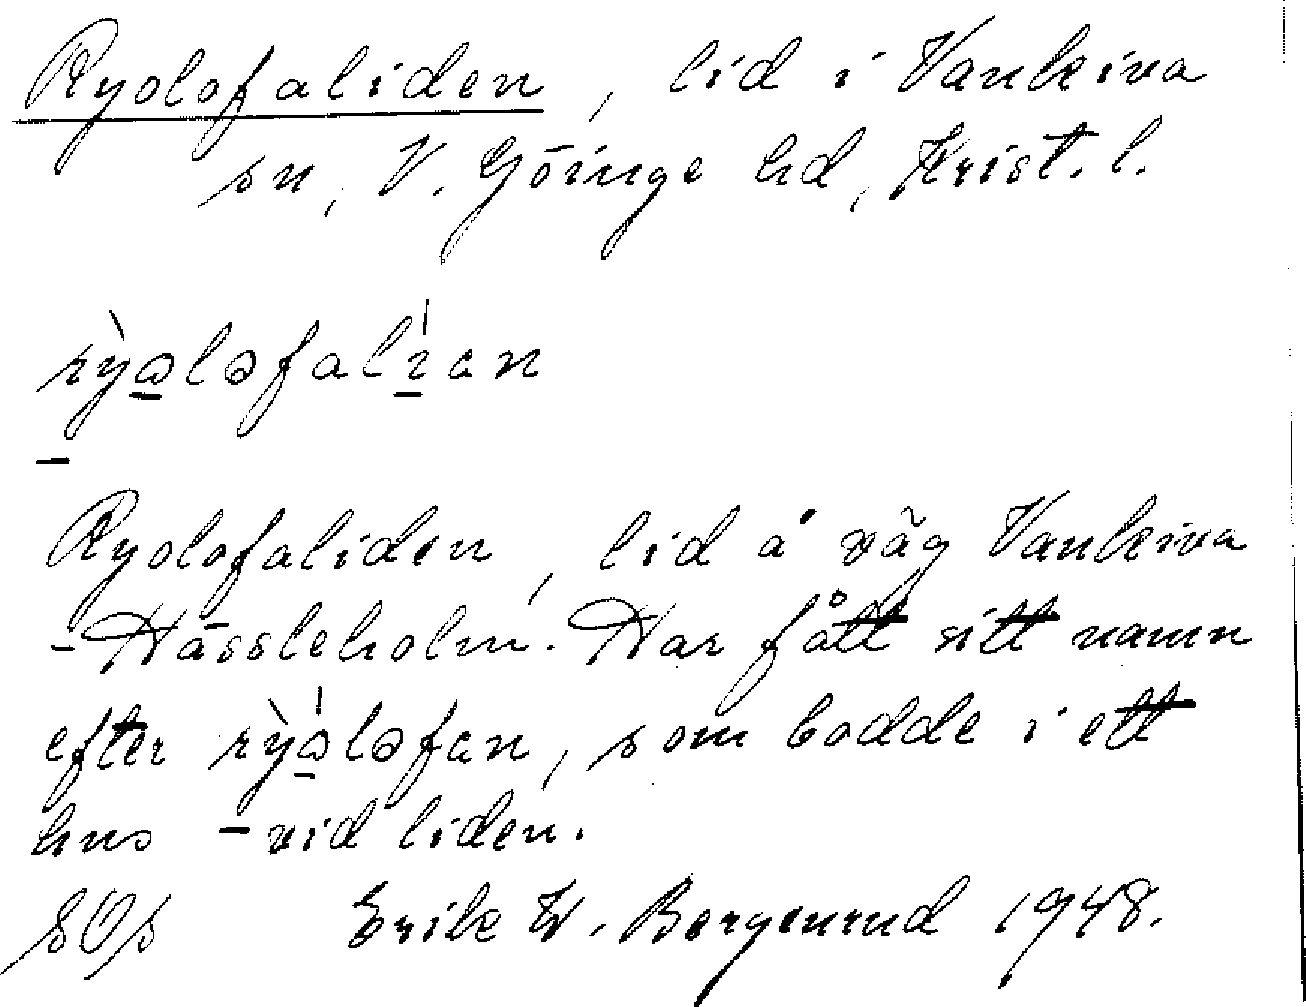 Ryolofaliden, lid i Vankiva
sn, V. Göinge hd, Krist. l.
rỳələfalìan
Ryolofaliden, lid å väg Vankiva
-Hässleholm. Har fått sitt namn
efter rỳələfan, som bodde i ett
hus vid liden.
SOs Erik W. Bergenrud 1948.